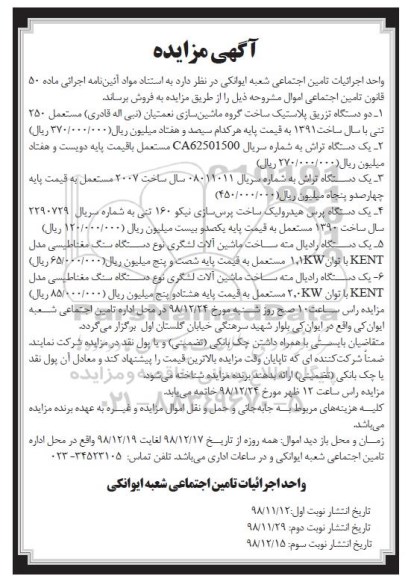 آگهی مزایده
واحد اجرائیات تامین اجتماعی شعبه ایوانکی در نظر دارد به استناد مواد آئین‌نامه اجرائی ماده ۵۰
قانون تامین اجتماعی اموال مشروحه ذیل را از طریق مزایده به فروش برساند.
۱ـ دو دستگاه تزریق پلاستیک ساخت گروه ماشین‌سازی نعمتیان (نبی اله قادری) مستعمل ۲۵۰
تنی با سال ساخت۱۳۹۱ به قیمت پایه هرکدام سیصد و هفتاد میلیون ریال(۳۷۰/۰۰۰/۰۰۰ ریال)
۲ـ یک دستگاه تراش به شماره سریال CA62501500 مستعمل باقیمت پایه دویست و هفتاد
میلیون ریال(۲۷۰/۰۰۰/۰۰۰ ریال)
۳ـ یک دستگاه تراش به شماره سریال ۰۸۰۱۱۰۱۱ سال ساخت ۲۰۰۷ مستعمل به قیمت پایه
چهارصدو پنجاه میلیون ریال(۴۵۰/۰۰۰/۰۰۰)
۴ـ یک دستگاه پرس هیدرولیک ساخت پرس‌سازی نیکو ۱۶۰ تنی به شماره سریال ۲۲۹۰۷۲۹
سال ساخت ۱۳۹۰ مستعمل به قیمت پایه یکصدو بیست میلیون ریال (۱۲۰/۰۰۰/۰۰۰ ریال)
۵ـ یک دستگاه رادیال مته ساخت ماشین آلات لنگری نوع دستگاه سنگ مغناطیسی مدل
KENT با توان ۱٫۱KW مستعمل به قیمت پایه شصت و پنج میلیون ریال(۶۵/۰۰۰/۰۰۰ ریال)
۶ـ یک دستگاه رادیال مته ساخت ماشین آلات لنگری نوع دستگاه سنگ مغناطیسی مدل
KENT با توان ۲٫۰KW مستعمل به قیمت پایه هشتادو پنج میلیون ریال (۸۵/۰۰۰/۰۰۰ ریال)
مزایده راس ساعت ۱۰ صبح روز شنبه مورخ ۹۸/۱۲/۲۴ در محل اداره تامین اجتماعی شعبه
ایوان‌کی واقع در ایوان‌کی بلوار شهید سرهنگی خیابان گلستان اول برگزار می‌گردد.
متقاضیان بایستی با همراه داشتن چک بانکی (تضمینی) و یا پول نقد در مزایده شرکت نمایند.
ضمناً شرکت‌کننده ای که تاپایان وقت مزایده بالاترین قیمت را پیشنهاد کند و معادل آن پول نقد
یا چک بانکی (تضمینی) ارائه بدهند برنده مزایده شناخته می‌شود.
مزایده راس ساعت ۱۲ ظهر مورخ ۹۸/۱۲/۲۴ خاتمه می‌یابد.
کلیه هزینه‌های مربوط به جابه‌جائی و حمل و نقل اموال مزایده و غیره به عهده برنده مزایده
می‌باشد.
زمان و محل باز دید اموال: همه روزه از تاریخ ۹۸/۱۲/۱۷ لغایت ۹۸/۱۲/۱۹ واقع در محل اداره
تامین اجتماعی شعبه ایوانکی و در ساعات اداری می‌باشد. تلفن تماس: ۳۴۵۲۳۱۰۵-۰۲۳
واحد اجرائیات تامین اجتماعی شعبه ایوانکی
تاریخ انتشار نوبت اول:۹۸/۱۱/۱۲
تاریخ انتشار نوبت دوم: ۹۸/۱۱/۲۹
تاریخ انتشار نوبت سوم: ۹۸/۱۲/۱۵